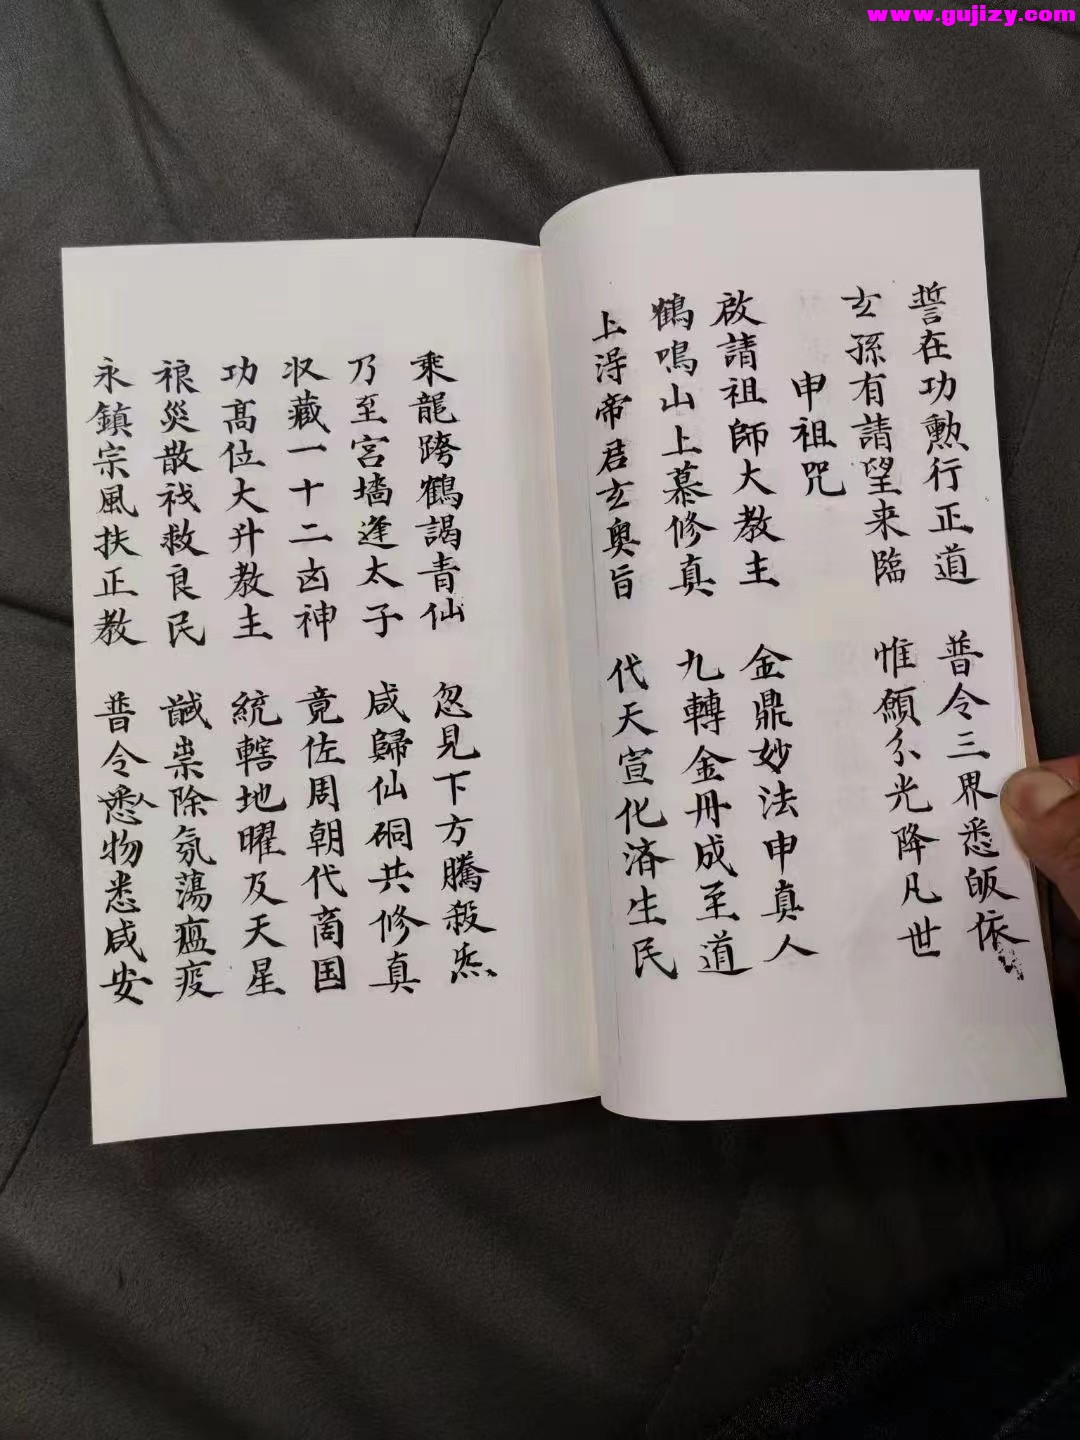 www.gujizy.com
誓在功勲行正道　普令三界悉皈依
玄孫有請望来臨　惟願分光降凡世
申祖咒
啟請祖師大教主　金鼎妙法申真人
鶴鳴山上慕修真　九轉金丹成至道
上淂帝君玄奥旨　代天宣化済生民
乘龍跨鶴謁青仙　忽見下方騰殺炁
乃至宮墻逢太子　咸歸仙硐共修真
収藏一十二凶神　竟佐周朝代商国
功髙位大升教主　統轄地曜及天星
祲災散祲救良民　馘祟除氛蕩瘟疫
永鎮宗風扶正教　普令人物悉咸安